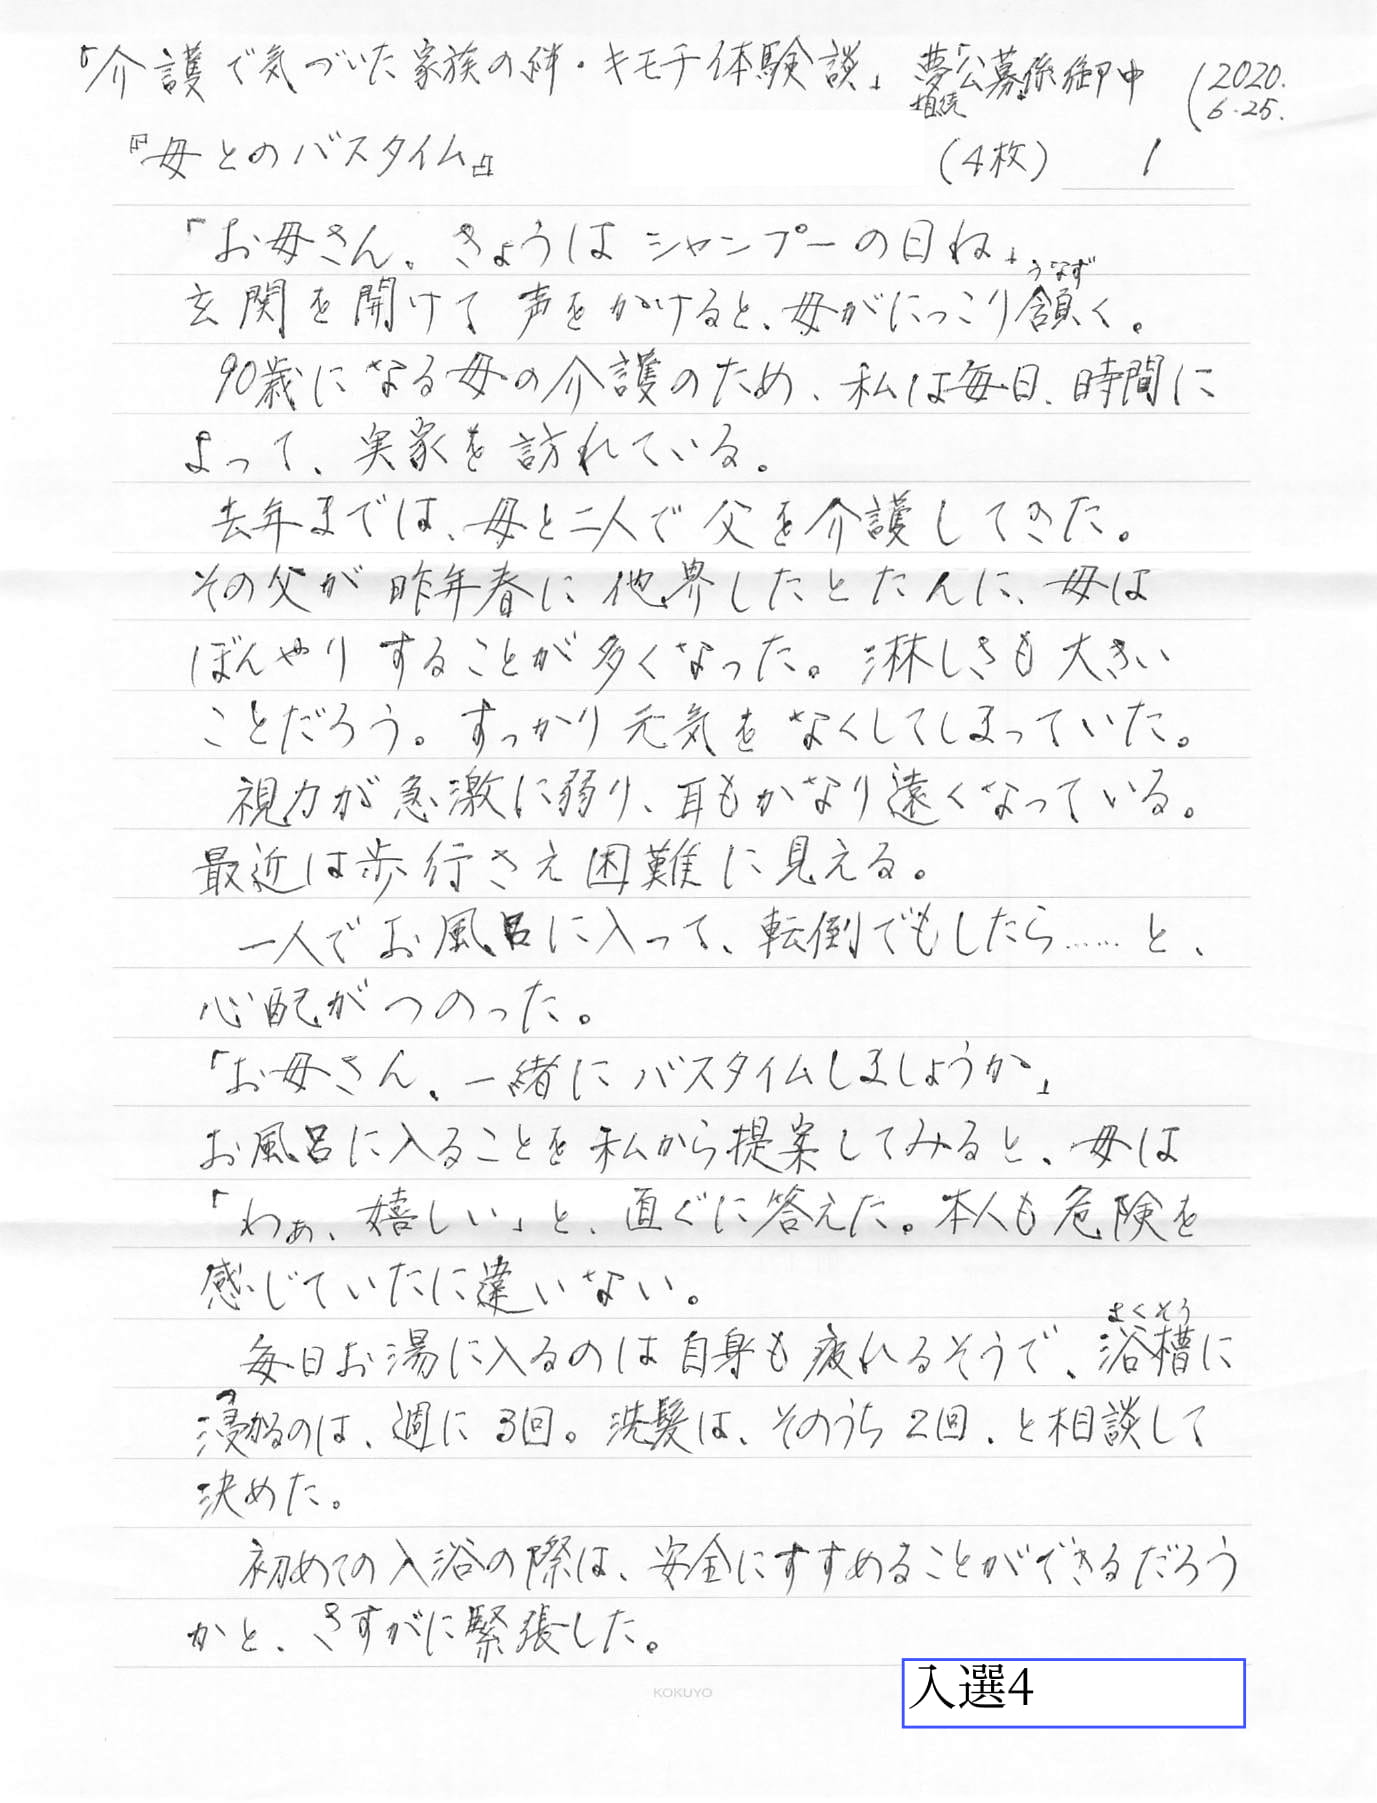 「介護で気づいた家族の絆・キモチ体験談」 夢相続「公募係」御中 (2020.6.25.
『母とのバスタイム』 (4枚) 1
「お母さん。きょうはシャンプーの日ね」
玄関を開けて声をかけると、母がにっこり頷く。
うなず
90歳になる母の介護のため、私は毎日、時間に
よって、実家を訪れている。
去年までは、母と二人で父を介護してきた。
その父が昨年春に他界したとたんに、母は
ぼんやりすることが多くなった。淋しさも大きい
ことだろう。すっかり元気をなくしてしまっていた。
視力が急激に弱り、耳もかなり遠くなっている。
最近は歩行さえ困難に見える。
一人でお風呂に入って、転倒でもしたら……と、
心配がつのった。
「お母さん、一緒にバスタイムしましょうか」
お風呂に入ることを私から提案してみると、母は
「わぁ、嬉しい」と、直ぐに答えた。本人も危険を
感じていたに違いない。
毎日お湯に入るのは自身も疲れるそうで、浴槽に
浸かるのは、週に3回。洗髪は、そのうち2回、と相談して
つ
決めた。
初めての入浴の際は、安全にすすめることができるだろう
かと、さすがに緊張した。
KOKUYO
入選4